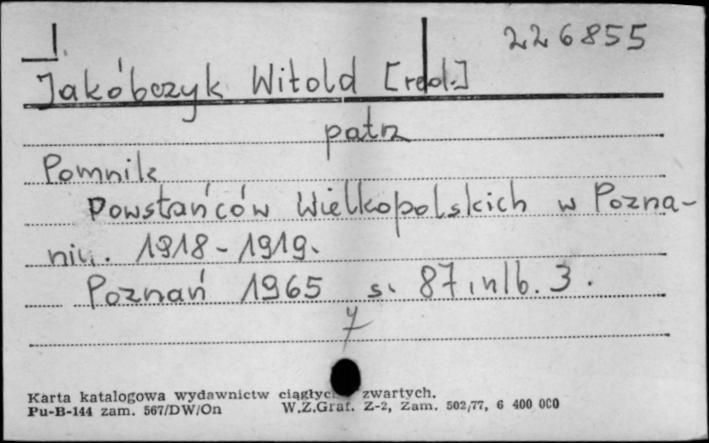 226855
Jakóbczyk Witold [red.]
patrz
Pomnik
Powstańców Wielkopolskich w Pozna-
niu. 1918-1919.
Poznań 1965 s. 87, nlb. 3.
Karta katalogowa wydawnictw zwartych.
Pu-B-144 zam. 567/DW/On W.Z.Graf. Z-2, Zam. 502/77, 6 400 000